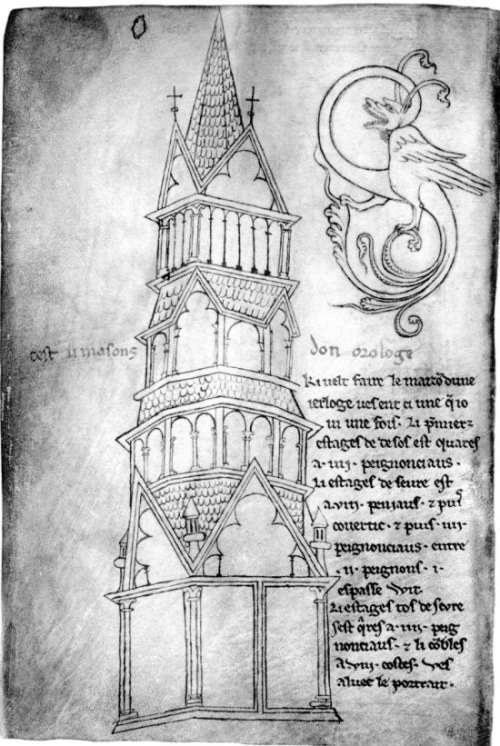 cest li masons don orologe
Ki velt faire le maizõ dune
ierloge ves ent ci une q̃ io
vi une fois. li p̃miers
estages de desos est quares
a .iiii. peignonciaus.
li estages de seure est
a .viii. peniaus. & puis
covertic. & puis .iiii.
peignonciaus. entre
.ii. peignons .i.
espasse wit.
li estages tos de seure
sest q̃res a .iiii. peig
nonciaus. & li cõbles
a .viii. costes. ves
aluec le portrait.